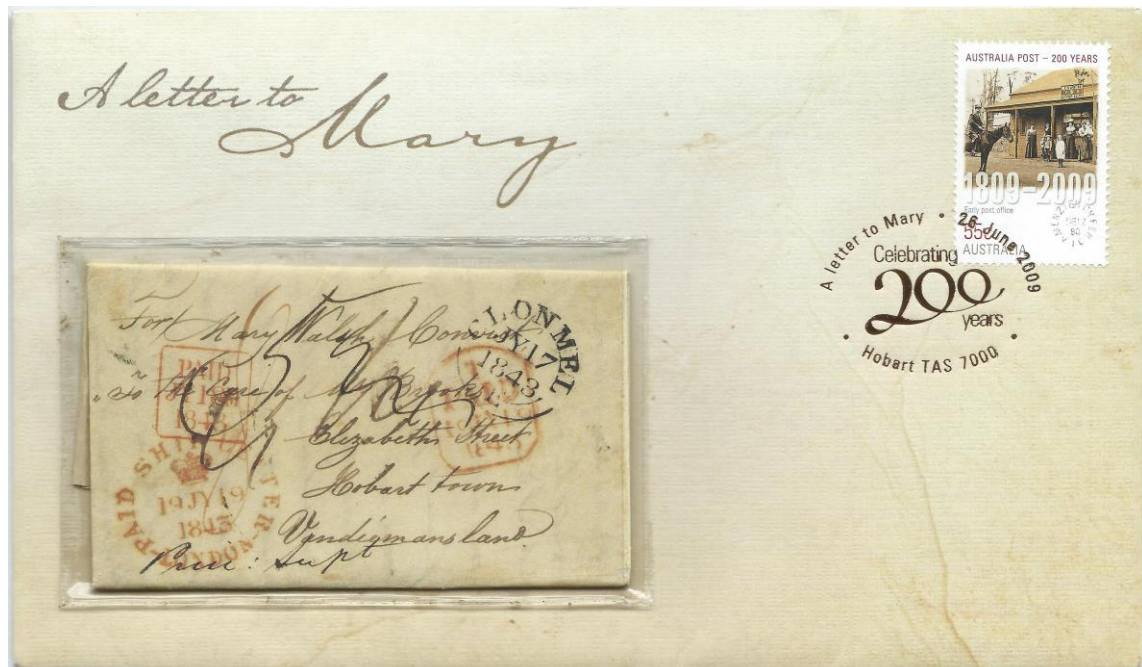 A letter to
Mary
AUSTRALIA POST – 200 YEARS
1809–2009
Early post office
55c
AUSTRALIA
A letter to Mary • 26 June 2009 •
Celebrating
200
years
Hobart TAS 7000
For Mary Walsh Convict
To The Care of Mr Brooks
Elizabeth Street
Hobart town
Vandiemansland
CLONMEL
JY 17
1843
PAID
1843
PAID
1843
PAID SHIP LETTER LONDON
19 JY 19
1843
Supt